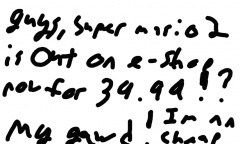 guys, super mario 2
is out on e-shop
now for 34.99!?
My gawd! Im an